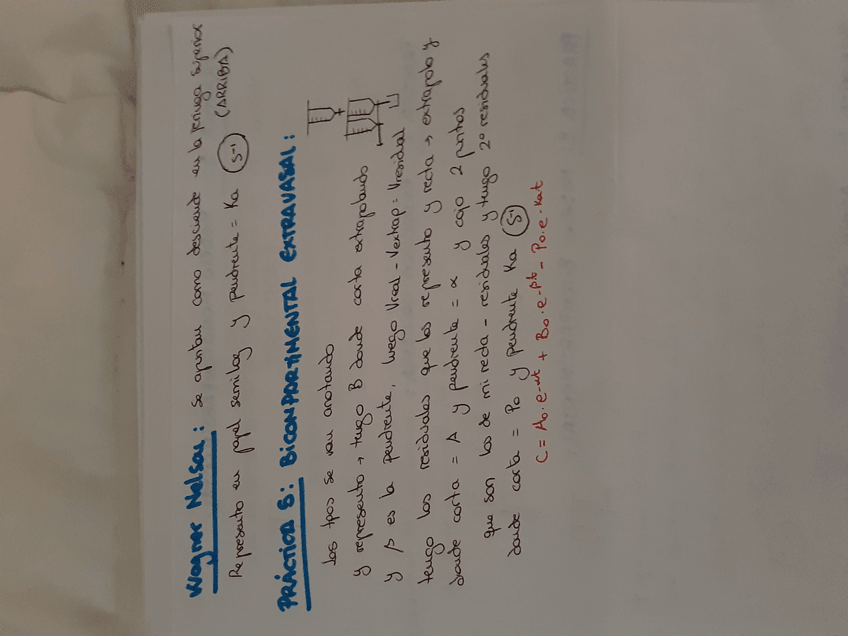 Wagner Nelson: Se apuntan como desciende en la jeringa superior
(ARRIBA)
Represento en papel semilog y pendiente = Ka (s-1)
PRÁCTICA 8: BICOMPARTIMENTAL EXTRAVASAL:
los tpos se van anotando
y represento → tengo B donde corta extrapolando
y β es la pendiente, luego Vreal - Vextrap = Vresidual
tengo los residuales que los represento y recta → extrapolo y
donde corta = A y pendiente = α y cojo 2 puntos
que son los de mi recta - residuales y tengo 2º residuales
donde corta = Po y pendiente Ka (s-1)
C = Ao·e-αt + Bo·e-βt - Po·e-Kat